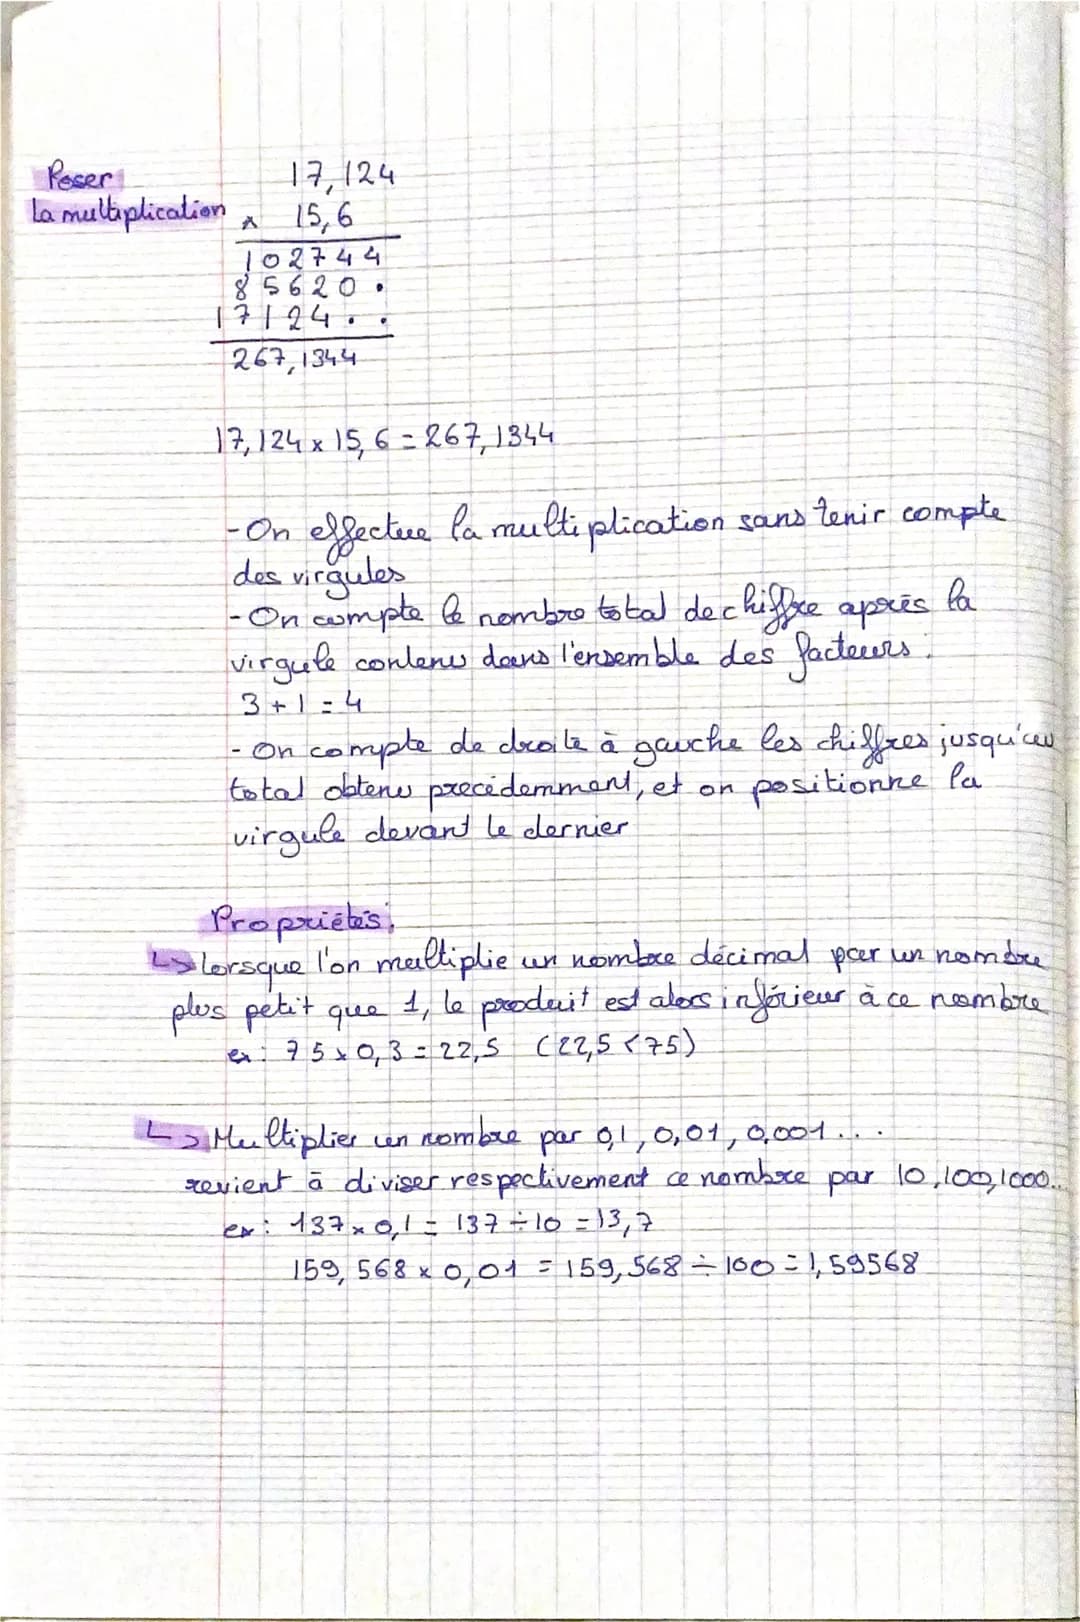 Poser
la multiplication
17,124
x 15,6
102744
85620.
17124..
267,1344
17,124 x 15,6 = 267,1344
- On effectue la multiplication sans tenir compte
des virgules
- On compte le nombre total de chiffre après la
virgule contenu dans l'ensemble des facteurs :
3 + 1 = 4
- On compte de droite à gauche les chiffres jusqu'au
total obtenu précédemment, et on positionne la
virgule devant le dernier
Propriétés :
↳ lorsque l'on multiplie un nombre décimal par un nombre
plus petit que 1, le produit est alors inférieur à ce nombre
ex : 75 x 0,3 = 22,5 (22,5 < 75)
↳ Multiplier un nombre par 0,1, 0,01, 0,001...
revient à diviser respectivement ce nombre par 10,100,1000...
ex : 137 x 0,1 = 137 ÷ 10 = 13,7
159,568 x 0,01 = 159,568 ÷ 100 = 1,59568